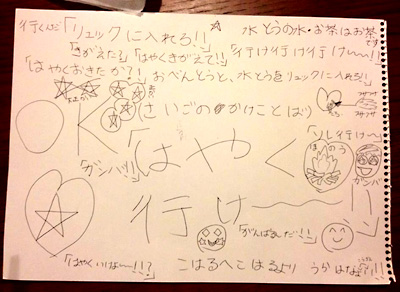 行くんだ「リュックに入れろ!!」
水とうの水・お茶はお茶です
「きがえた?」「はやくきがえて!」「行け行け行け行け〜!!」
「はやくおきたか?!」おべんとうと、水とうをリュックに入れろ!!
(さいごのかけことばり)
「ソレ行け〜」
ほのう
「はやく
「ガンバ!!」
ガンバ
行け〜〜!!」
「がんばるんだ!!」
「はやくいけば〜!!?」
こはるへこはるより